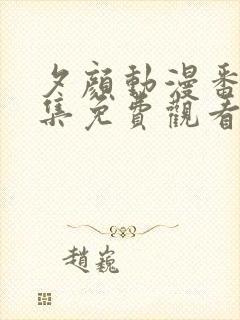 夕顔動漫番
集免費觀看
趙巍